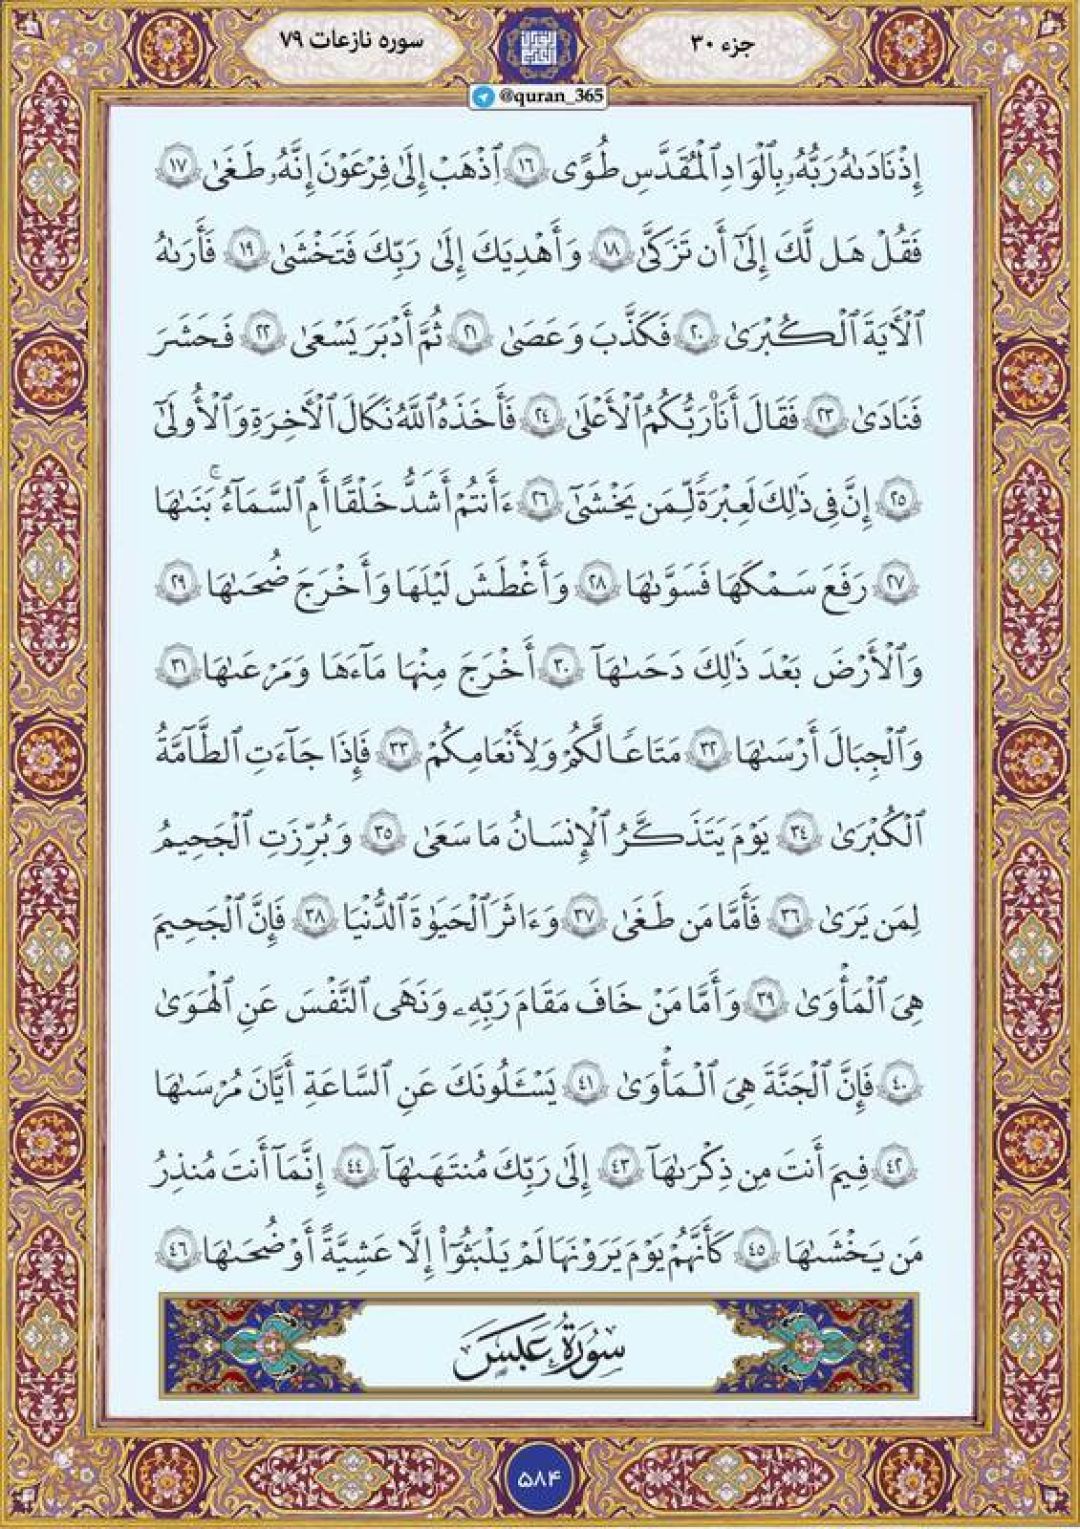 جزء ۳۰
سوره نازعات ۷۹
@quran_365
إِذْ نَادَىٰهُ رَبُّهُۥ بِٱلْوَادِ ٱلْمُقَدَّسِ طُوًى ١٦ ٱذْهَبْ إِلَىٰ فِرْعَوْنَ إِنَّهُۥ طَغَىٰ ١٧
فَقُلْ هَل لَّكَ إِلَىٰٓ أَن تَزَكَّىٰ ١٨ وَأَهْدِيَكَ إِلَىٰ رَبِّكَ فَتَخْشَىٰ ١٩ فَأَرَىٰهُ
ٱلْأَيَةَ ٱلْكُبْرَىٰ ٢٠ فَكَذَّبَ وَعَصَىٰ ٢١ ثُمَّ أَدْبَرَ يَسْعَىٰ ٢٢ فَحَشَرَ
فَنَادَىٰ ٢٣ فَقَالَ أَنَا۠ رَبُّكُمُ ٱلْأَعْلَىٰ ٢٤ فَأَخَذَهُ ٱللَّهُ نَكَالَ ٱلْأَخِرَةِ وَٱلْأُولَىٰٓ
٢٥ إِنَّ فِى ذَٰلِكَ لَعِبْرَةً لِّمَن يَخْشَىٰٓ ٢٦ ءَأَنتُمْ أَشَدُّ خَلْقًا أَمِ ٱلسَّمَآءُ ۚ بَنَىٰهَا
٢٧ رَفَعَ سَمْكَهَا فَسَوَّىٰهَا ٢٨ وَأَغْطَشَ لَيْلَهَا وَأَخْرَجَ ضُحَىٰهَا ٢٩
وَٱلْأَرْضَ بَعْدَ ذَٰلِكَ دَحَىٰهَآ ٣٠ أَخْرَجَ مِنْهَا مَآءَهَا وَمَرْعَىٰهَا ٣١
وَٱلْجِبَالَ أَرْسَىٰهَا ٣٢ مَتَاعًا لَّكُمْ وَلِأَنْعَامِكُمْ ٣٣ فَإِذَا جَآءَتِ ٱلطَّآمَّةُ
ٱلْكُبْرَىٰ ٣٤ يَوْمَ يَتَذَكَّرُ ٱلْإِنسَانُ مَا سَعَىٰ ٣٥ وَبُرِّزَتِ ٱلْجَحِيمُ
لِمَن يَرَىٰ ٣٦ فَأَمَّا مَن طَغَىٰ ٣٧ وَءَاثَرَ ٱلْحَيَوٰةَ ٱلدُّنْيَا ٣٨ فَإِنَّ ٱلْجَحِيمَ
هِىَ ٱلْمَأْوَىٰ ٣٩ وَأَمَّا مَنْ خَافَ مَقَامَ رَبِّهِۦ وَنَهَى ٱلنَّفْسَ عَنِ ٱلْهَوَىٰ
٤٠ فَإِنَّ ٱلْجَنَّةَ هِىَ ٱلْمَأْوَىٰ ٤١ يَسْـَٔلُونَكَ عَنِ ٱلسَّاعَةِ أَيَّانَ مُرْسَىٰهَا
٤٢ فِيمَ أَنتَ مِن ذِكْرَىٰهَآ ٤٣ إِلَىٰ رَبِّكَ مُنتَهَىٰهَآ ٤٤ إِنَّمَآ أَنتَ مُنذِرُ
مَن يَخْشَىٰهَا ٤٥ كَأَنَّهُمْ يَوْمَ يَرَوْنَهَا لَمْ يَلْبَثُوٓا۟ إِلَّا عَشِيَّةً أَوْ ضُحَىٰهَا ٤٦
سُورَةُ عَبَسَ
۵۸۴